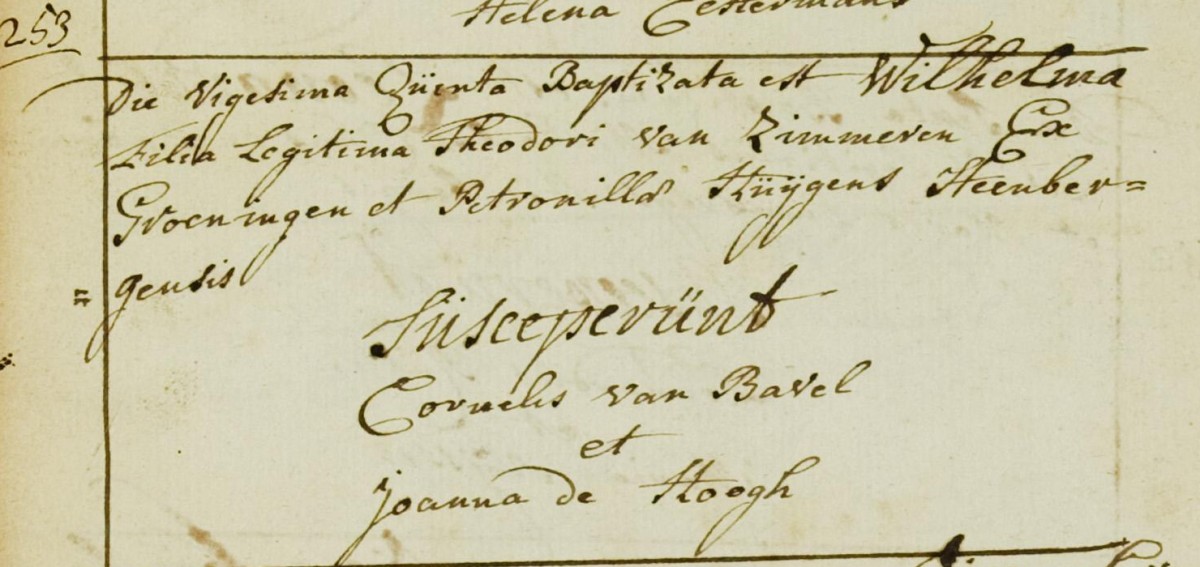 Helena Cestermans
253
Die Vigesima Qüinta Baptizata est Wilhelma
Filia Legitima Theodori van Zimmeren Ex
Groeningen et Petronillæ Hüÿgens Steenber=
gensis
Süsceperünt
Cornelis van Bavel
et
Joanna de Hoogh